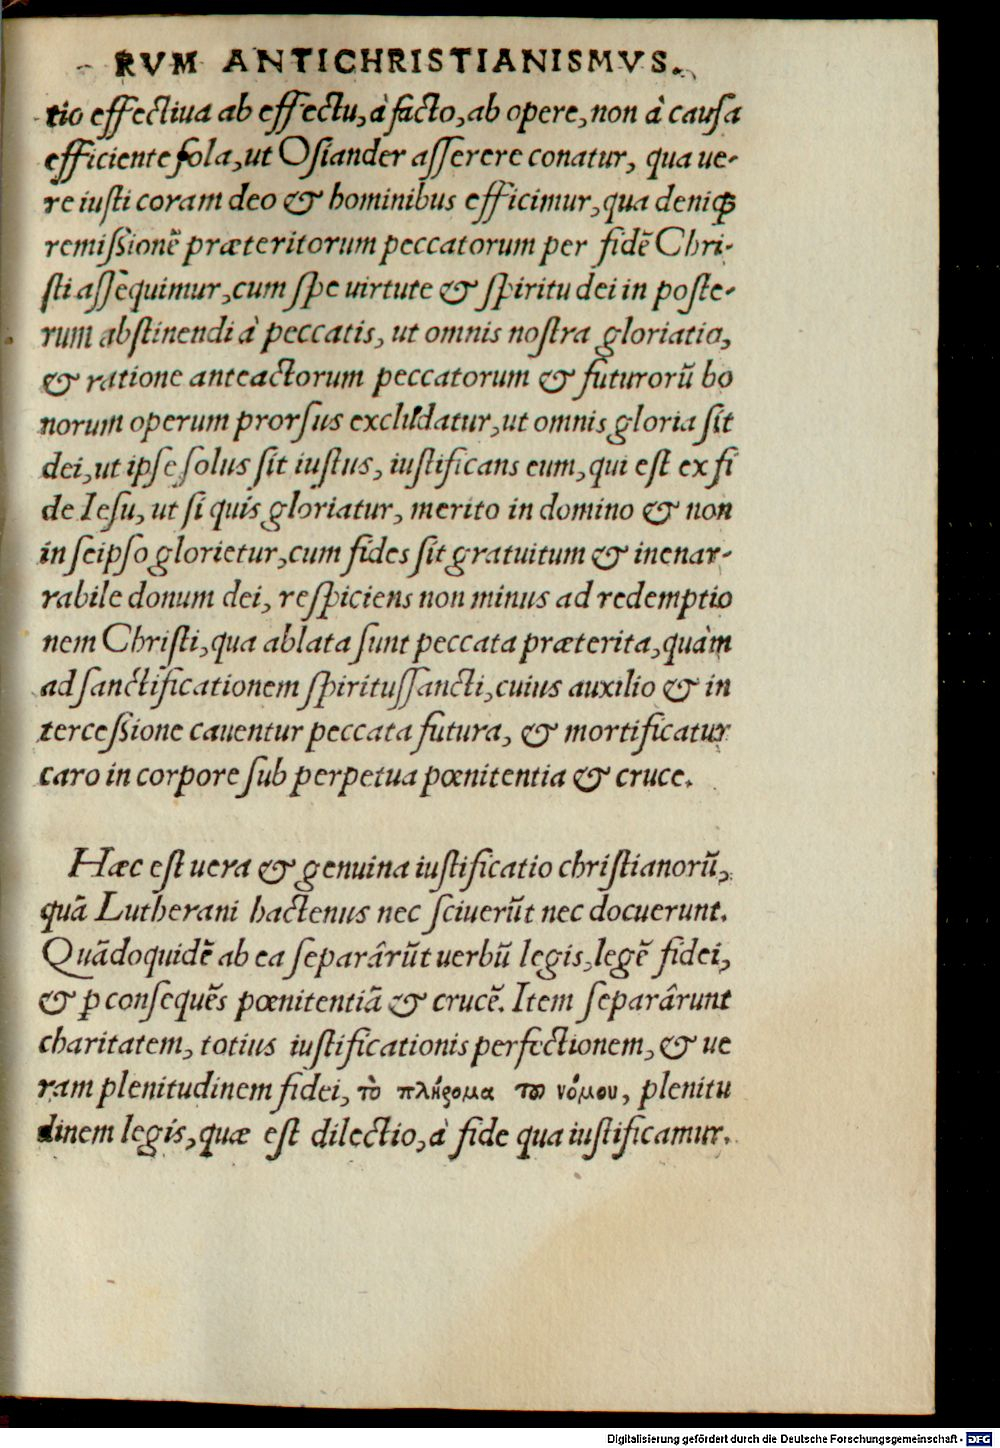 RVM ANTICHRISTIANISMVS.
tio effectiua ab effectu, à facto, ab opere, non à causa
efficiente sola, ut Osiander asserere conatur, qua ue-
re iusti coram deo & hominibus efficimur, qua deniqꝫ
remißionē præteritorum peccatorum per fidē Chri-
sti assequimur, cum spe uirtute & spiritu dei in poste-
rum abstinendi à peccatis, ut omnis nostra gloriatio,
& ratione anteactorum peccatorum & futurorū bo
norum operum prorsus excludatur, ut omnis gloria sit
dei, ut ipse solus sit iustus, iustificans eum, qui est ex fi
de Iesu, ut si quis gloriatur, merito in domino & non
in seipso glorietur, cum fides sit gratuitum & inenar-
rabile donum dei, respiciens non minus ad redemptio
nem Christi, qua ablata sunt peccata præterita, quàm
ad sanctificationem spiritussancti, cuius auxilio & in
terceßione cauentur peccata futura, & mortificatur
caro in corpore sub perpetua pœnitentia & cruce.
Hæc est uera & genuina iustificatio christianorū,
quā Lutherani hactenus nec sciuerūt nec docuerunt.
Quādoquidē ab ea separârūt uerbū legis, legē fidei,
& ꝑ consequēs pœnitentiā & crucē. Item separârunt
charitatem, totius iustificationis perfectionem, & ue
ram plenitudinem fidei, τὸ πλήρομα τοῦ νόμου, plenitu
dinem legis, quæ est dilectio, à fide qua iustificamur.
Digitalisierung gefördert durch die Deutsche Forschungsgemeinschaft - DFG